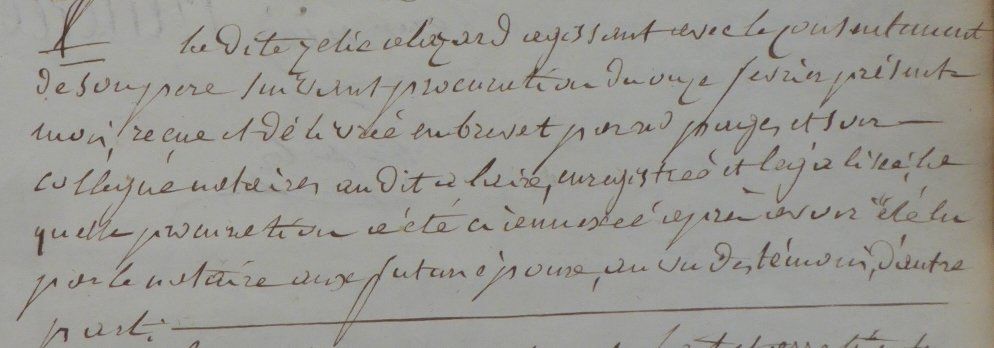 ladite zelie alizard agissant avec le consentement
de son pere suivant procuration du onze fevrier présent
mois, reçue et délivrée en brevet par et son
collégue notaires audit alaire, enregistrée et légalisée, la
quelle procuration a été ci annexée après avoir été lu
par le notaire aux futurs époux, au vu des témoins, d'autre
part.